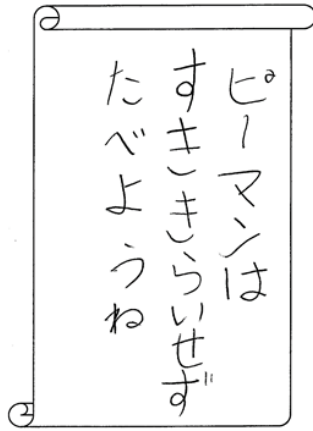 ピーマンは
すききらいせず
たべようね